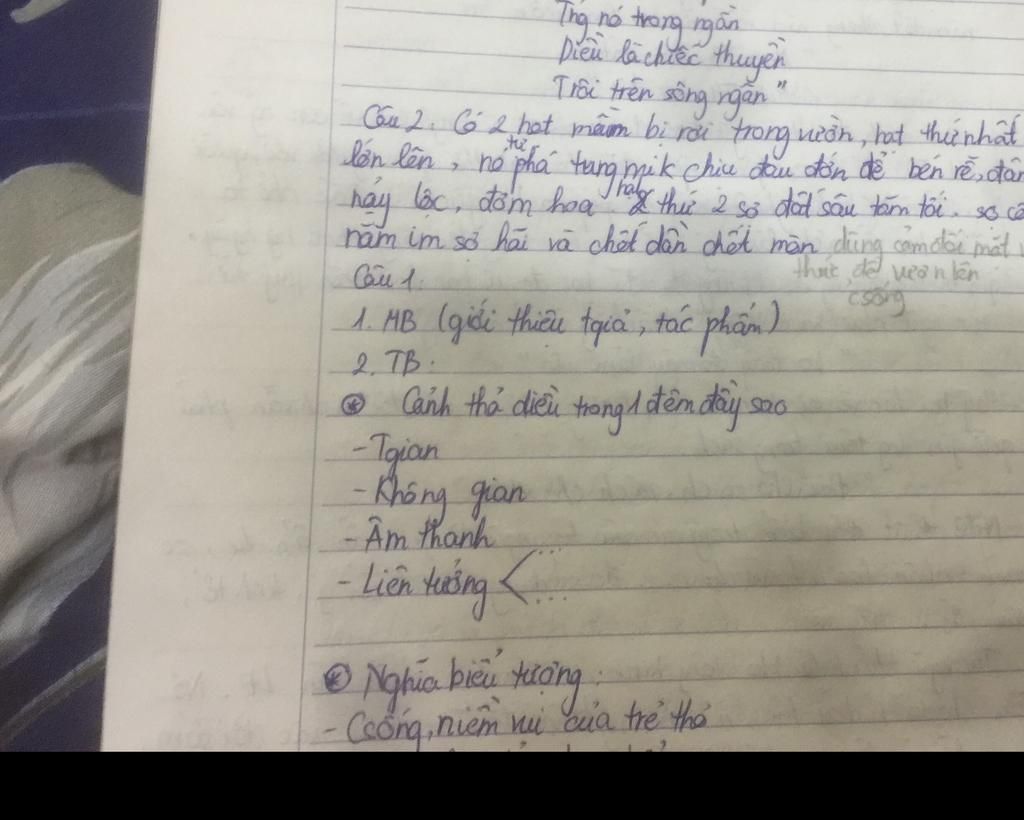 Trg nó trong ngần
Diều là chiếc thuyền
Trôi trên sông ngân"
Câu 2. Có 2 hạt mầm bị rơi trong vườn, hạt thứ nhất
lớn lên, nó tự phá tung mik chịu đau đớn để bén rễ, đâm
nảy lộc, đơm hoa hạt thứ 2 sợ đất sâu tăm tối. sợ
nằm im sợ hãi và chết dần chết mòn dũng cảm đối mặt
thức để vươn lên
csống
Câu 1:
1. MB (giới thiệu tgiả, tác phẩm)
2. TB:
Cảnh thả diều trong 1 đêm đầy sao
- Tgian
- Không gian
- Âm thanh
- Liên tưởng < ... ...
Nghĩa biểu tượng:
- Csống, niềm vui của trẻ thơ